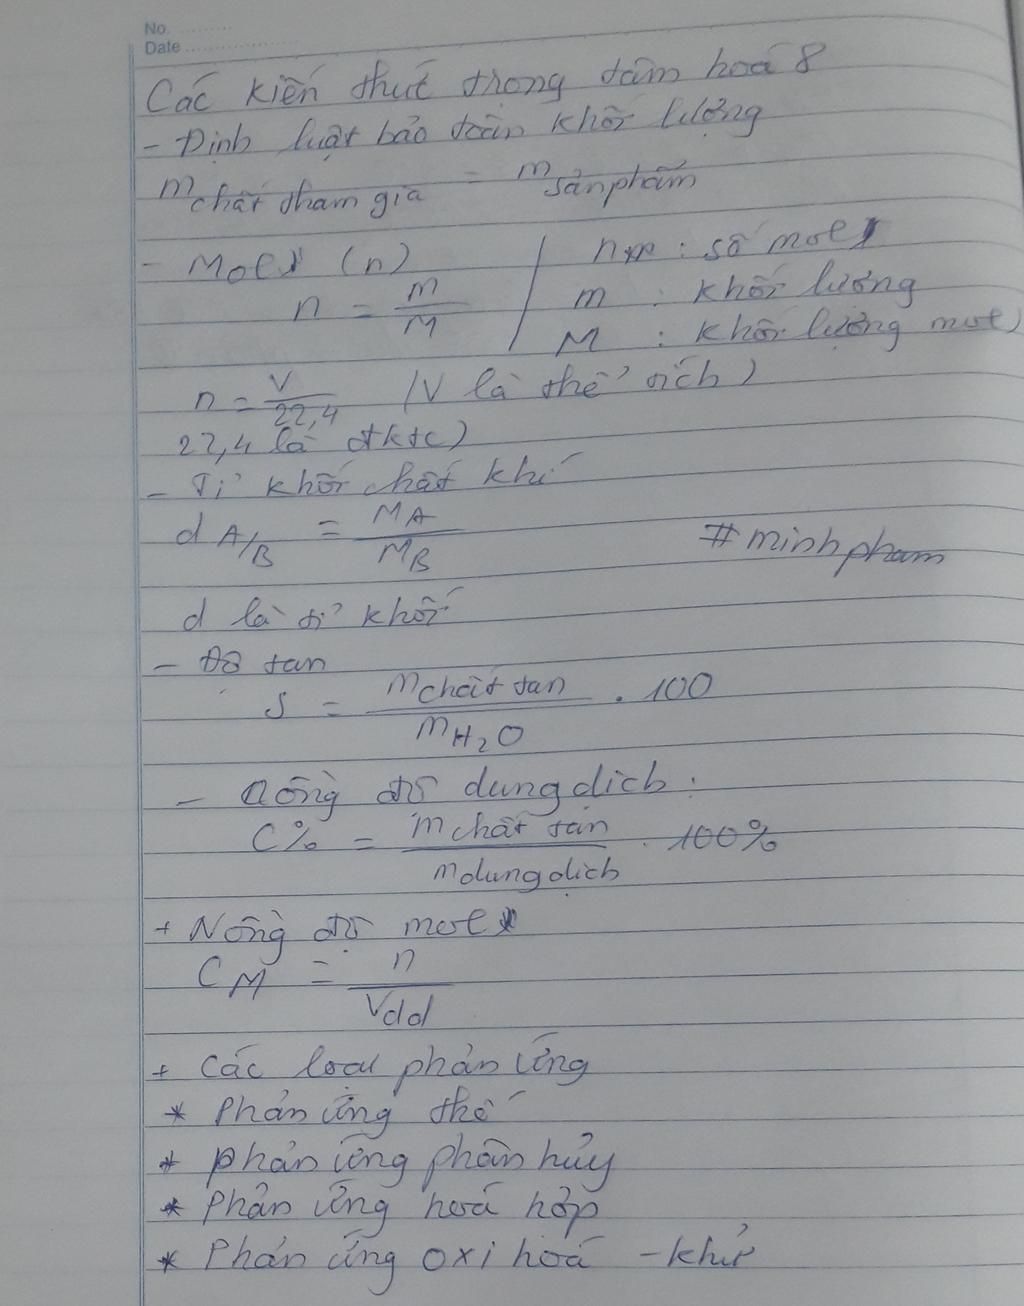 No.
Date
Các kiến thức trọng tâm hoá 8
- Định luật bảo toàn khối lượng
m chất tham gia = m sản phẩm
- Mol (n) | n : số mol
n = m/M | m : khối lượng
M : khối lượng mol
n = V/22,4 (V là thể tích)
22,4 là đktc)
- Tỉ khối chất khí
d A/B = MA/MB
#minhpham
d là tỉ khối
- Độ tan
S = mchất tan/mH2O . 100
- Nồng độ dung dịch :
C% = mchất tan/mdung dịch . 100%
+ Nồng độ mol
CM = n/Vdd
+ Các loại phản ứng
* Phản ứng thế
* phản ứng phân hủy
* Phản ứng hoá hợp
* Phản ứng oxi hoá - khử